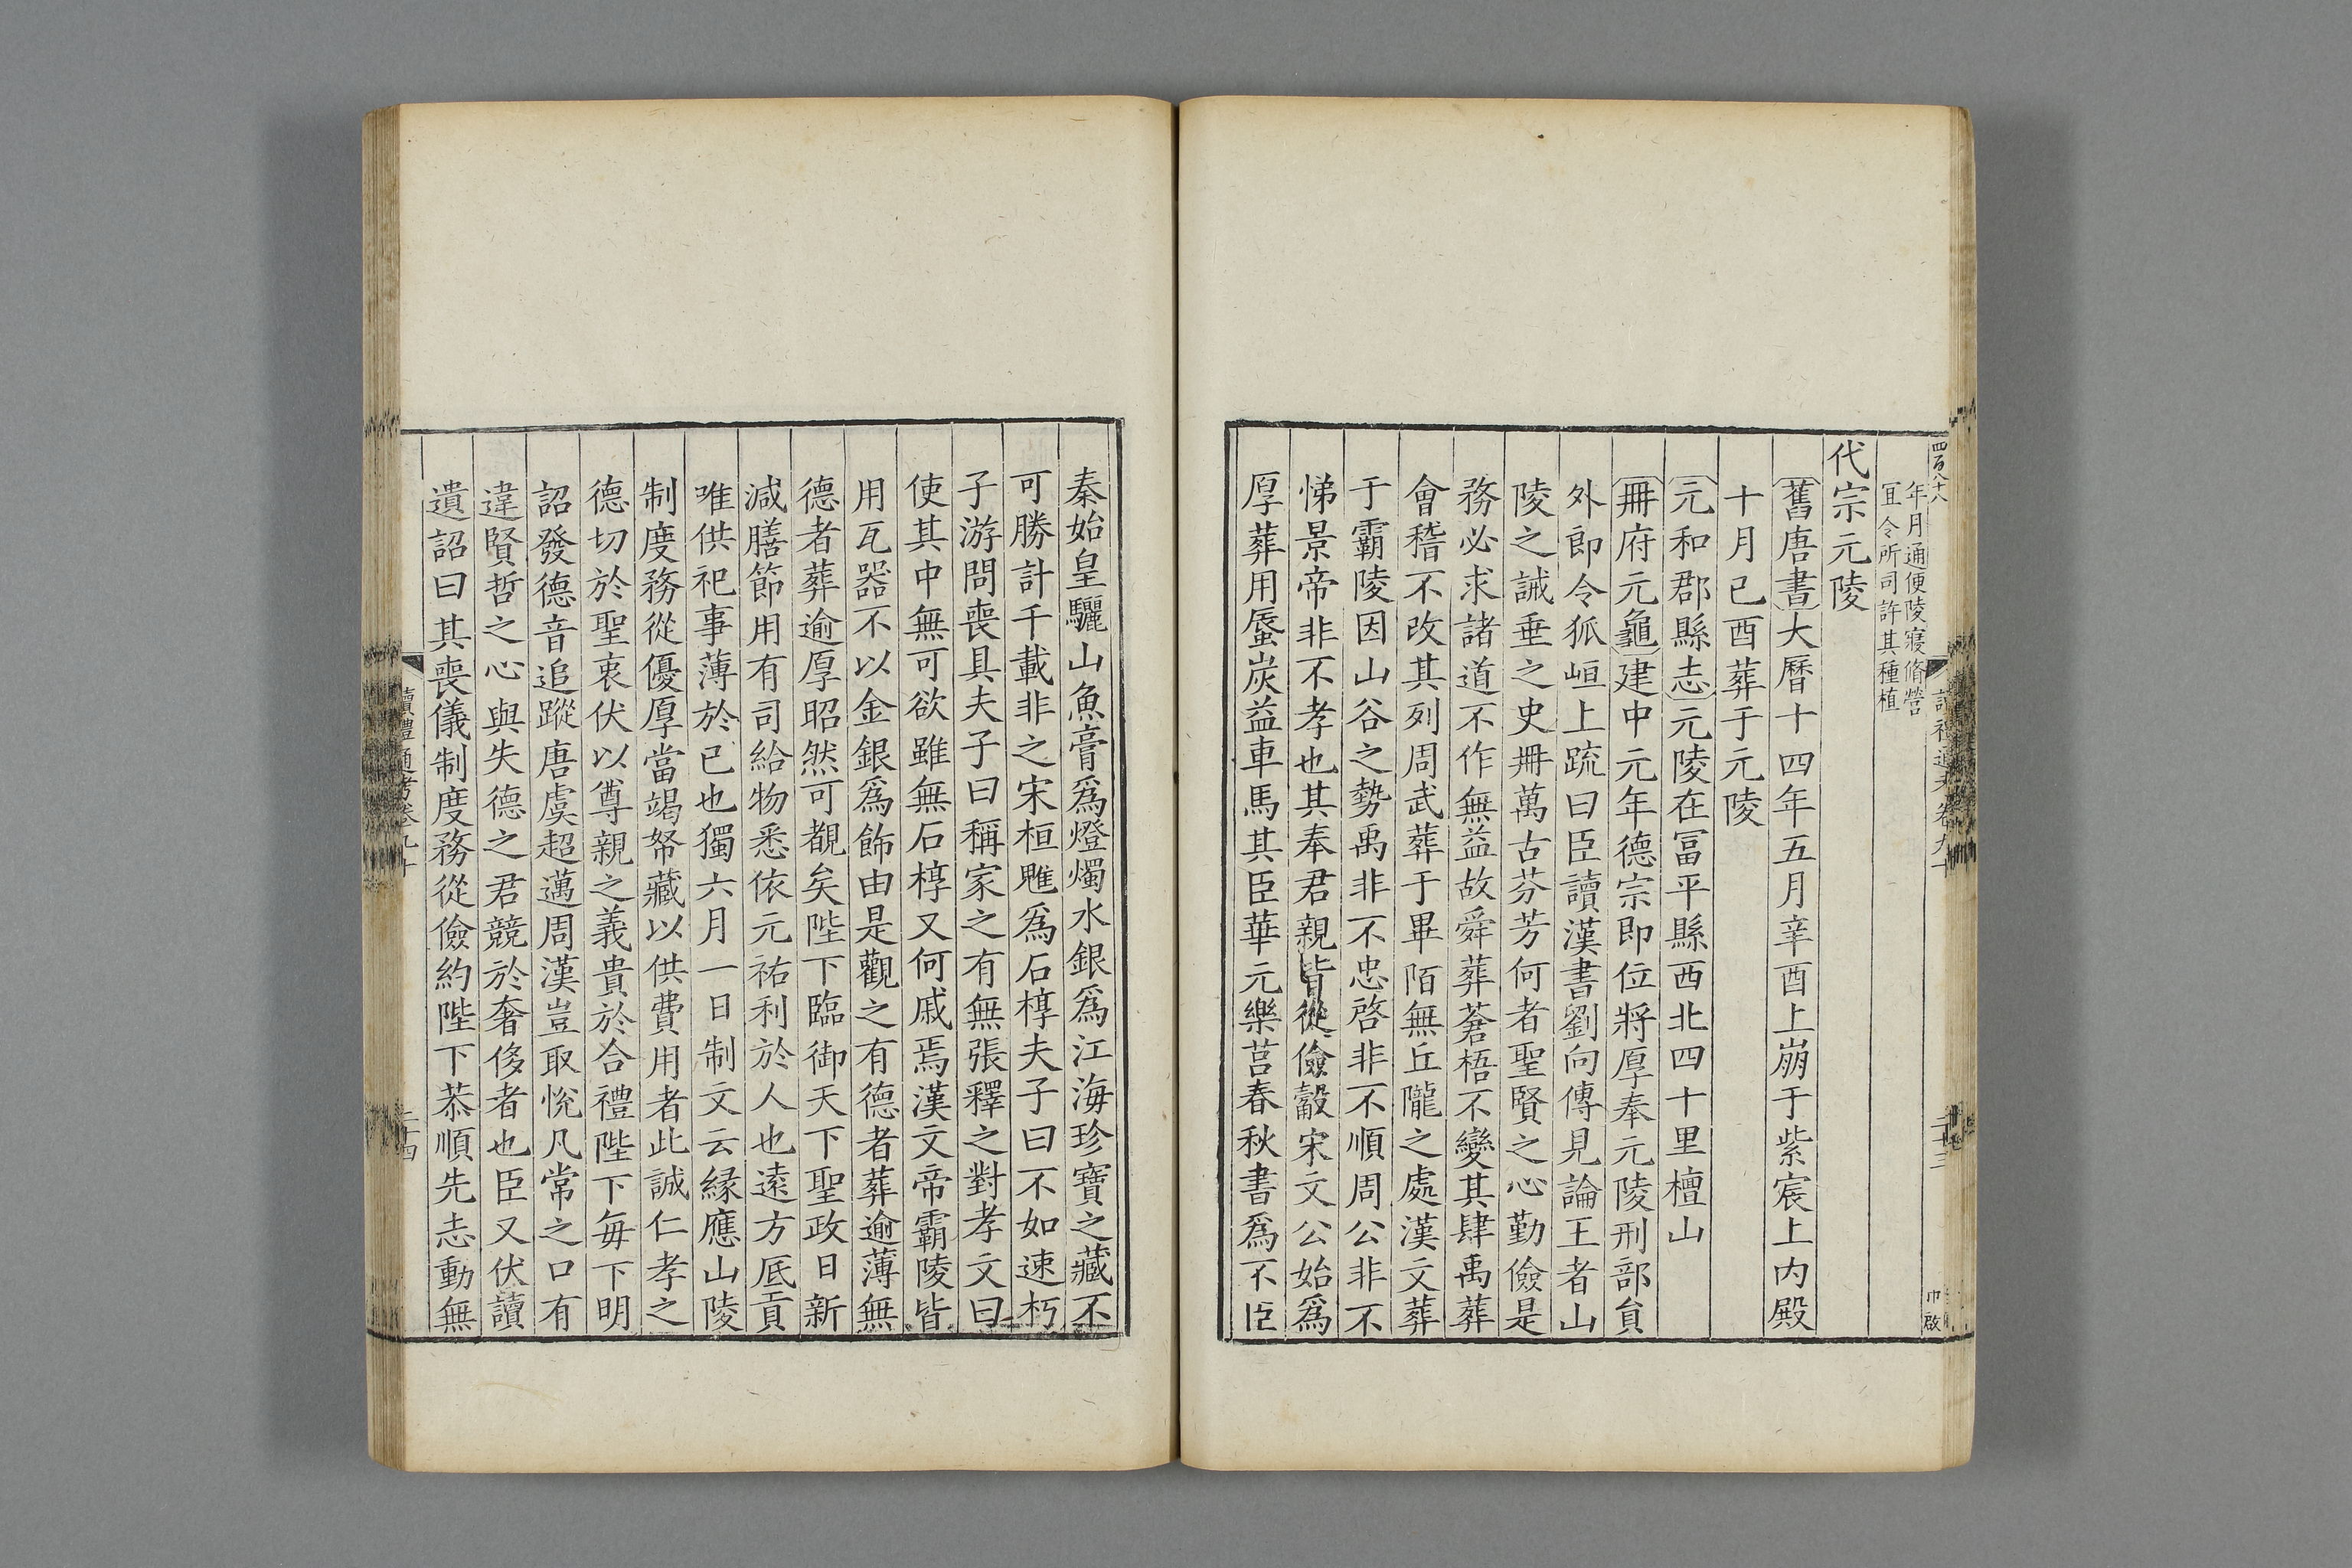 四百八十八
年月通便陵寑脩營
冝令所司許其種植
代宗元陵
舊唐書大曆十四年五月辛酉上崩于紫宸上内殿
十月已酉葬于元陵
元和郡縣志元陵在冨平縣西北四十里檀山
冊府元龜建中元年德宗即位將厚奉元陵刑部貟
外郎令狐峘上疏曰臣讀漢書劉向傳見論王者山
陵之誡垂之史冊萬古芬芳何者聖賢之心勤儉是
務必求諸道不作無益故舜葬蒼梧不變其肆禹葬
會稽不改其列周武葬于畢陌無丘隴之處漢文葬
于霸陵因山谷之勢禹非不忠啓非不順周公非不
悌景帝非不孝也其奉君親皆從儉觳宋文公始爲
厚葬用蜃炭益車馬其臣華元樂莒春秋書爲不臣
秦始皇驪山魚膏爲燈燭水銀爲江海珍寶之藏不
可勝計千載非之宋桓魋爲石椁夫子曰不如速朽
子游問喪具夫子曰稱家之有無張釋之對孝文曰
使其中無可欲雖無石椁又何戚焉漢文帝霸陵皆
用瓦器不以金銀爲飾由是觀之有德者葬逾薄無
德者葬逾厚昭然可覩矣陛下臨御天下聖政日新
減膳節用有司給物悉依元祐利於人也遠方底貢
唯供祀事薄於已也獨六月一日制文云緣應山陵
制度務從優厚當竭帑藏以供費用者此誠仁孝之
德切於聖衷伏以尊親之義貴於合禮陛下每下明
詔發德音追蹤唐虞超邁周漢豈取悅凡常之口有
違賢哲之心與失德之君競於奢侈者也臣又伏讀
遺詔曰其喪儀制度務從儉約陛下恭順先志動無
讀禮通考卷九十
二十四